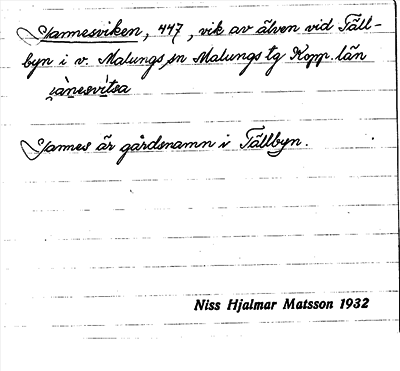 Jannesviken, 447, vik av älven vid Täll-
byn i v. Malungs sn Malungs tg Kopp. län
i̯ànesvı̀tsa
Jannes är gårdsnamn i Tällbyn.
Niss Hjalmar Matsson 1932